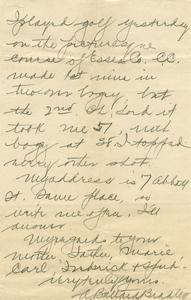 I played golf yesterday
on the picturesque
course of Essex Co. C.C.
made 1st nine in
two over bogey but
the 2nd
took me 51, with
bogey at 38. I topped
every other shot.
My address is 7 Abbott
St. Same place, so
write me often. I'll
answer.
My regards to your
mother, Father, Marie
Carl, Frederick &
Very truly yours
A. Ballard Bradley